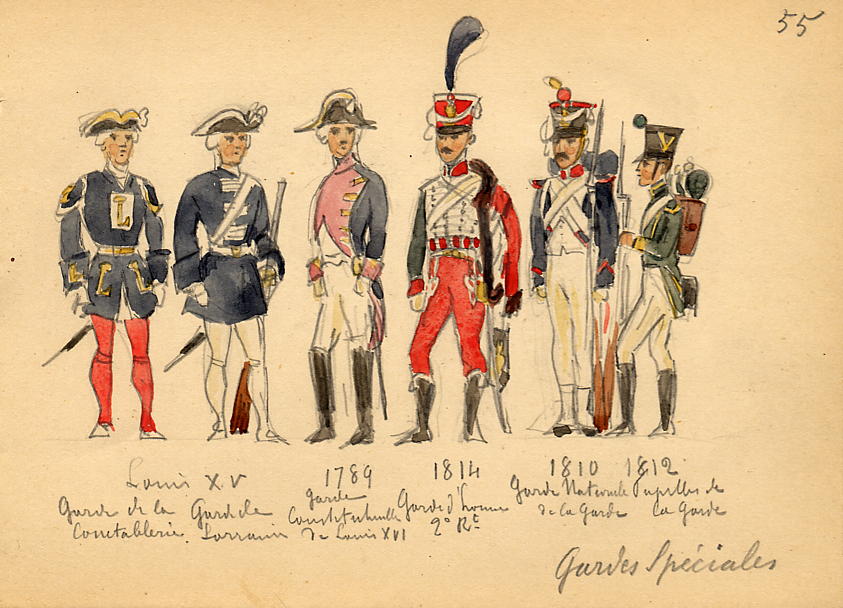 55
Louis XV
Garde de la
Connétablerie
Garde de
Lorraine
1789
Garde
Constitutionnelle
de Louis XVI
1814
Garde d'honneur
2e Rt
1810
Garde Nationale
de la Garde
1812
Pupilles de
la Garde
Gardes Spéciales
L
L
L
L